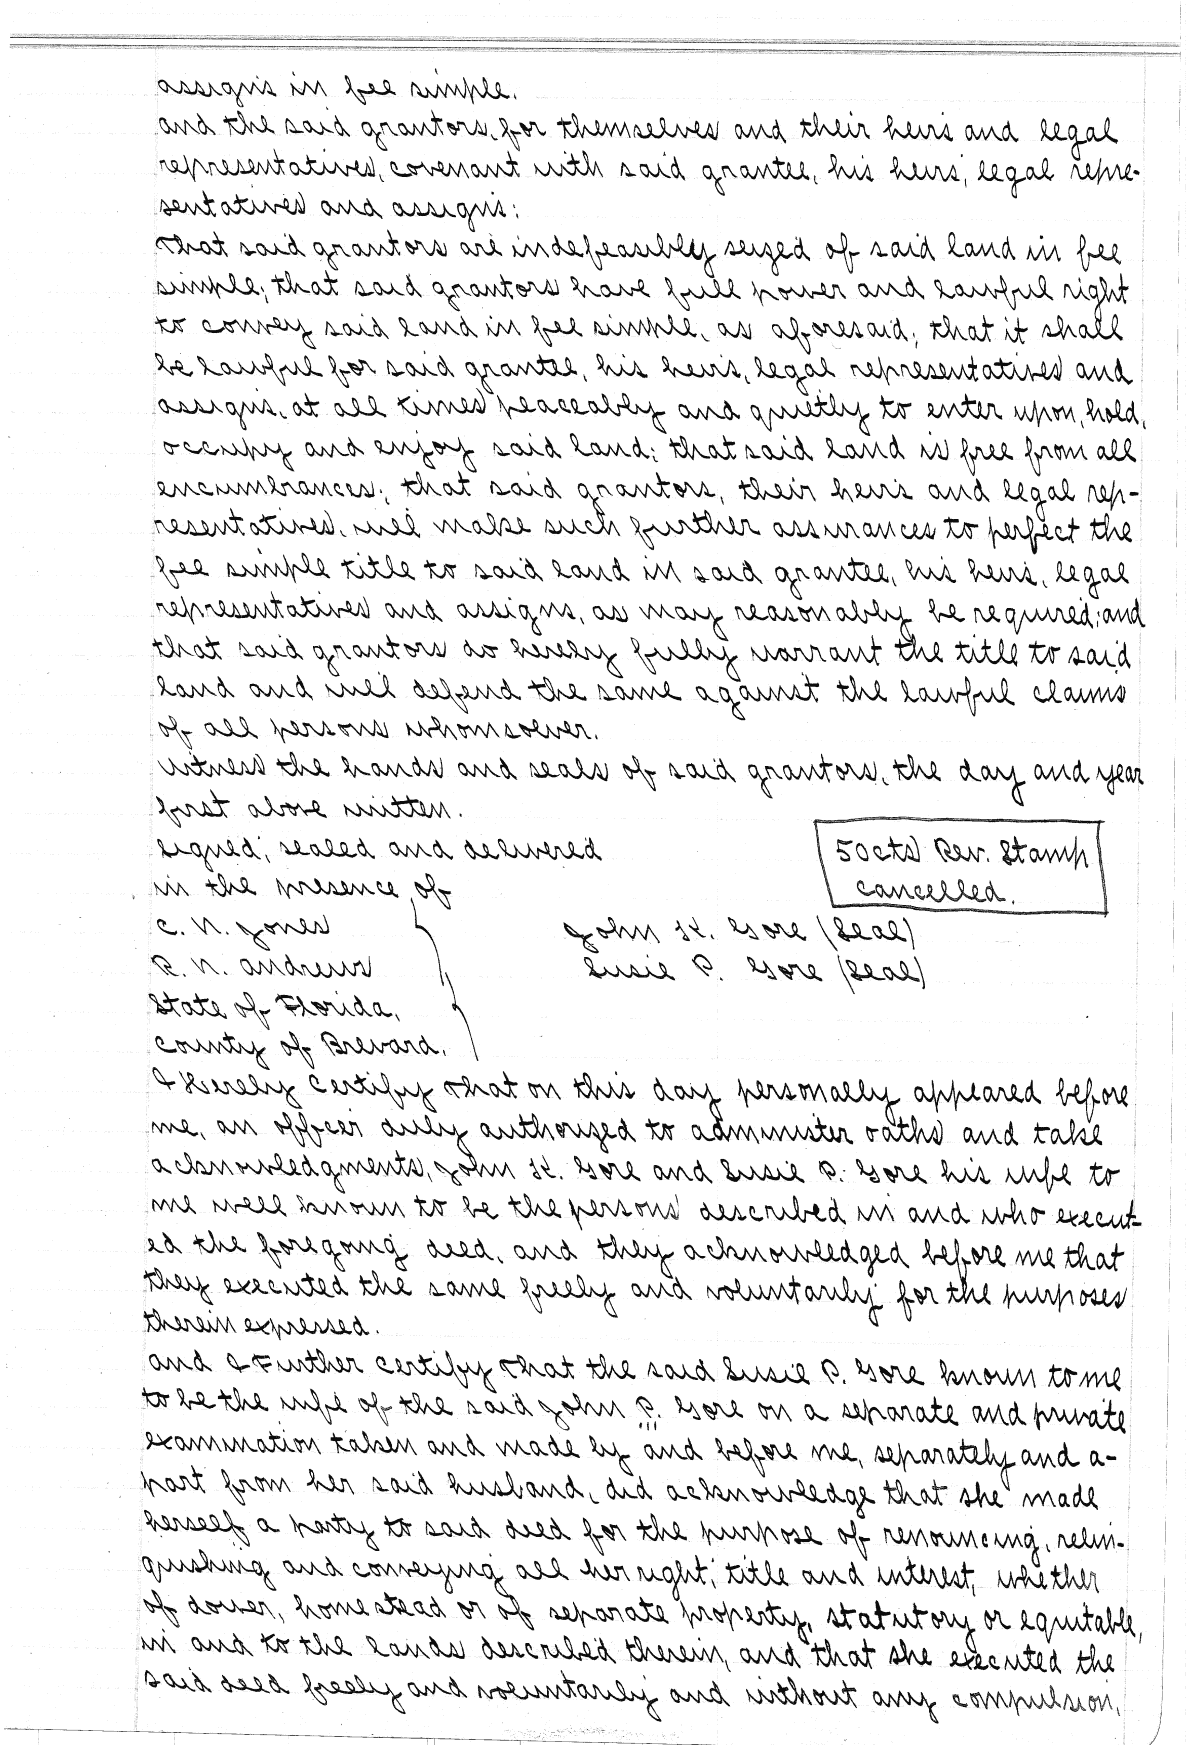 assigns in fee simple.
and the said grantors, for themselves and their heirs and legal
representatives, covenant with said grantee, his heirs, legal repre-
sentatives and assigns:
That said grantors are indefeasibly seized of said land in fee
simple; that said grantors have full power and lawful right
to convey said land in fee simple, as aforesaid; that it shall
be lawful for said grantee, his heirs, legal representatives and
assigns, at all times peaceably and quietly to enter upon, hold,
occupy and enjoy said land; that said land is free from all
encumbrances; that said grantors, their heirs and legal rep-
resentatives, will make such further assurances to perfect the
fee simple title to said land in said grantee, his heirs, legal
representatives and assigns, as may reasonably be required; and
that said grantors do hereby fully warrant the title to said
land and will defend the same against the lawful claims
of all persons whomsoever.
Witness the hands and seals of said grantors, the day and year
first above written.
Signed, sealed and delivered
in the presence of
50cts Rev. Stamp
cancelled.
C. N. Jones
R. N. Andrews
John K. Gore (Seal)
Susie P. Gore (Seal)
State of Florida,
County of Brevard.
I Hereby Certify That on this day personally appeared before
me, an officer duly authorized to administer oaths and take
acknowledgments, John K. Gore and Susie P. Gore his wife to
me well known to be the persons described in and who execut-
ed the foregoing deed, and they acknowledged before me that
they executed the same freely and voluntarily for the purposes
therein expressed.
and I Further Certify That the said Susie P. Gore known to me
to be the wife of the said John P. Gore on a separate and private
examination taken and made by and before me, separately and a-
part from her said husband, did acknowledge that she made
herself a party to said deed for the purpose of renouncing, relin-
quishing and conveying all her right, title and interest, whether
of dower, homestead or of separate property, statutory or equitable,
in and to the lands described therein, and that she executed the
said deed freely and voluntarily and without any compulsion,